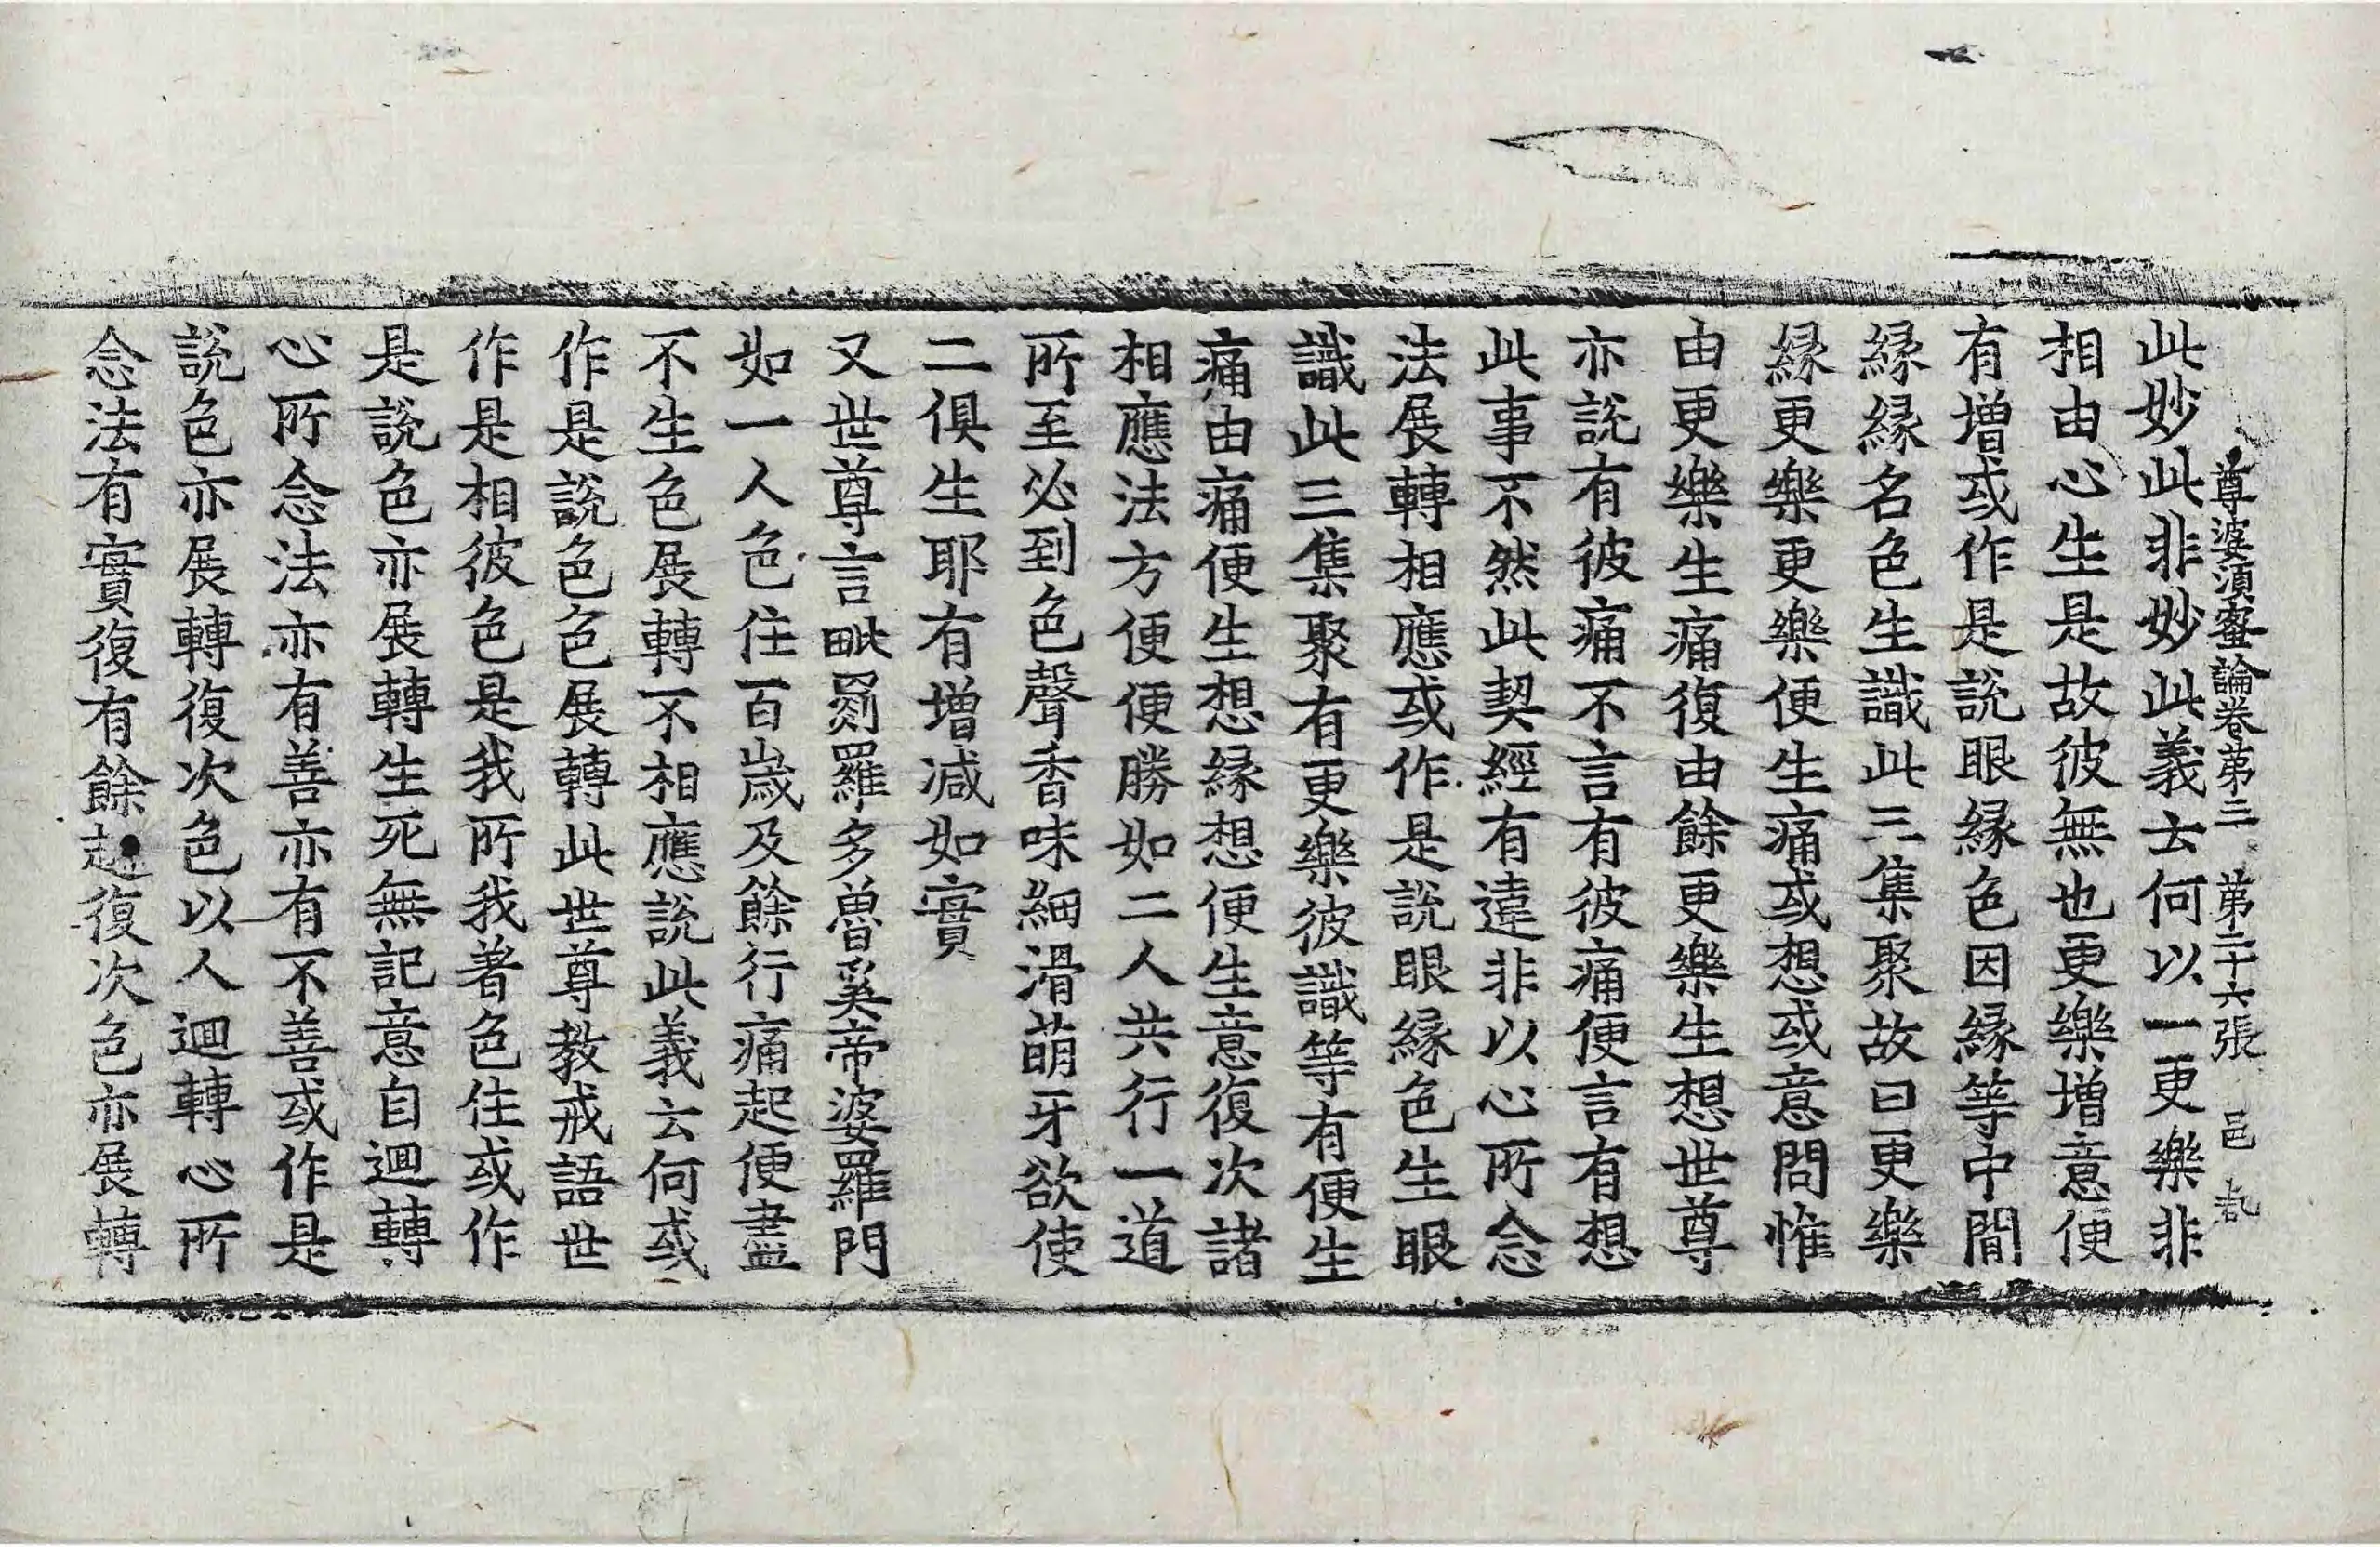 尊婆湏蜜論卷苐三 苐二十六張 邑
此妙此非妙此義云何以一更樂非
相由心生是故彼無也更樂增意便
有增或作是說眼緣色因緣等中間
緣緣名色生識此三集聚故曰更樂
緣更樂更樂便生痛或想或意問惟
由更樂生痛復由餘更樂生想世尊
亦說有彼痛不言有彼痛便言有想
此事不然此契經有違非以心所念
法展轉相應或作是說眼緣色生眼
識此三集聚有更樂彼識等有便生
痛由痛便生想緣想便生意復次諸
相應法方便便勝如二人共行一道
所至必到色聲香味細滑萌牙欲使
二俱生耶有增减如實
又世尊言毗羅多魯奚帝婆羅門
如一人色住百歲及餘行痛起便盡
不生色展轉不相應說此義云何或
作是說色色展轉此世尊教戒語世
作是相彼色是我所我著色住或作
是說色亦展轉生死無記意自迴轉
心所念法亦有善亦有不善或作是
說色亦展轉復次色以人迴轉心所
念法有實復有餘起復次色亦展轉